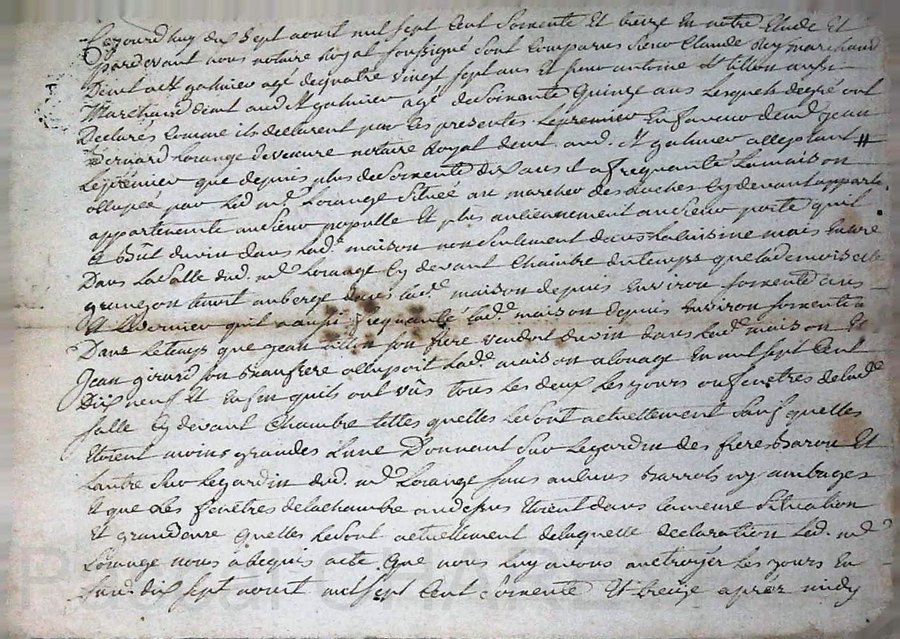 Cejourd'huy dix Sept aoust mil sept Cent Soixente Et treize En notre Etude Et
pardevant nous notaire Royal soussigné sont Comparus Sieur Claude Rey marchand
de St galmier agé de quatre vingt sept ans Et sieur antoine aussi
Marchand dud St galmier agé de Soixente Quinze ans Lesquels degré ont
Declarés Comme ils declarent par les presentes Le premier En faveur de me Jean
Bernard Lorange notaire Royal aud. St galmier alleguant
Le premier que depuis plus de Soixente dix ans il a frequanté La maison
ollupée par Led. me Lorange Situéé au marché des Ey devant apparte
appartenante au Sieur populle Et plus anciennement au Sieur porte qu'il
a bût du vin dans Lad. maison non seulement dans La Cuisine mais Encore
Dans La Salle dud. me Lorange Cy devant Chambre du temps que la demoiselle
grangeon tenoit auberge dans Lad. maison depuis Environ soixente ans
Et Le dernier qu'il a aussi frequanté Lad. maison depuis Environ soixente
Dans Le temps que jean son frere vendoit du vin dans Lad. maison Et
Jean girard son beaufrere ollupoit Lad. maison a Louage En mil sept Cent
Dix neuf Et Enfin quils ont vûs tous Les deux Les jours ou fenetres de lad.
salle Cy devant Chambre telles quelles Le sont actuellement Sauf quelles
Etoient moins grandes L'une Donnant Sur Le jardin des freres Baron Et
Lautre Sur Le jardin dud. me Lorange sans aucuns barrots ny ambages
Et que Les fenêtres de la chambre au dessus Etoient dans la meme Situation
Et grandeure quelles Le sont actuellement de laquelle declaration Led. me
Lorange nous a Requis acte Que nous Luy avons auctroyés Les jours En
Susd. dix sept aoust mil sept Cent soixente Et treize après midy
Pascal